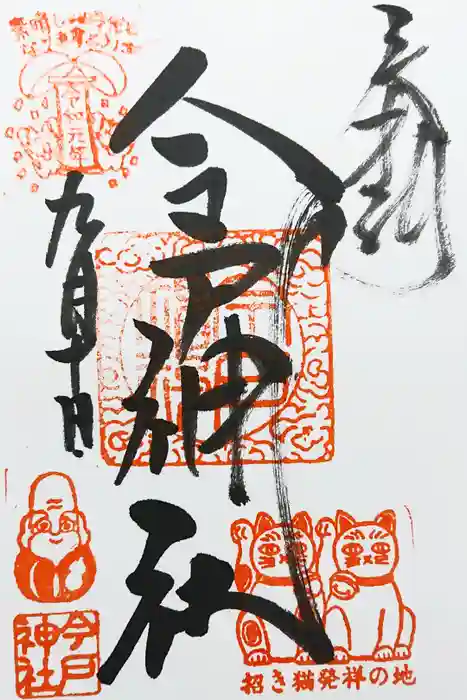 奉拝
今戸神社
令和元年
九月十日
今戸
神社
招き猫発祥の地